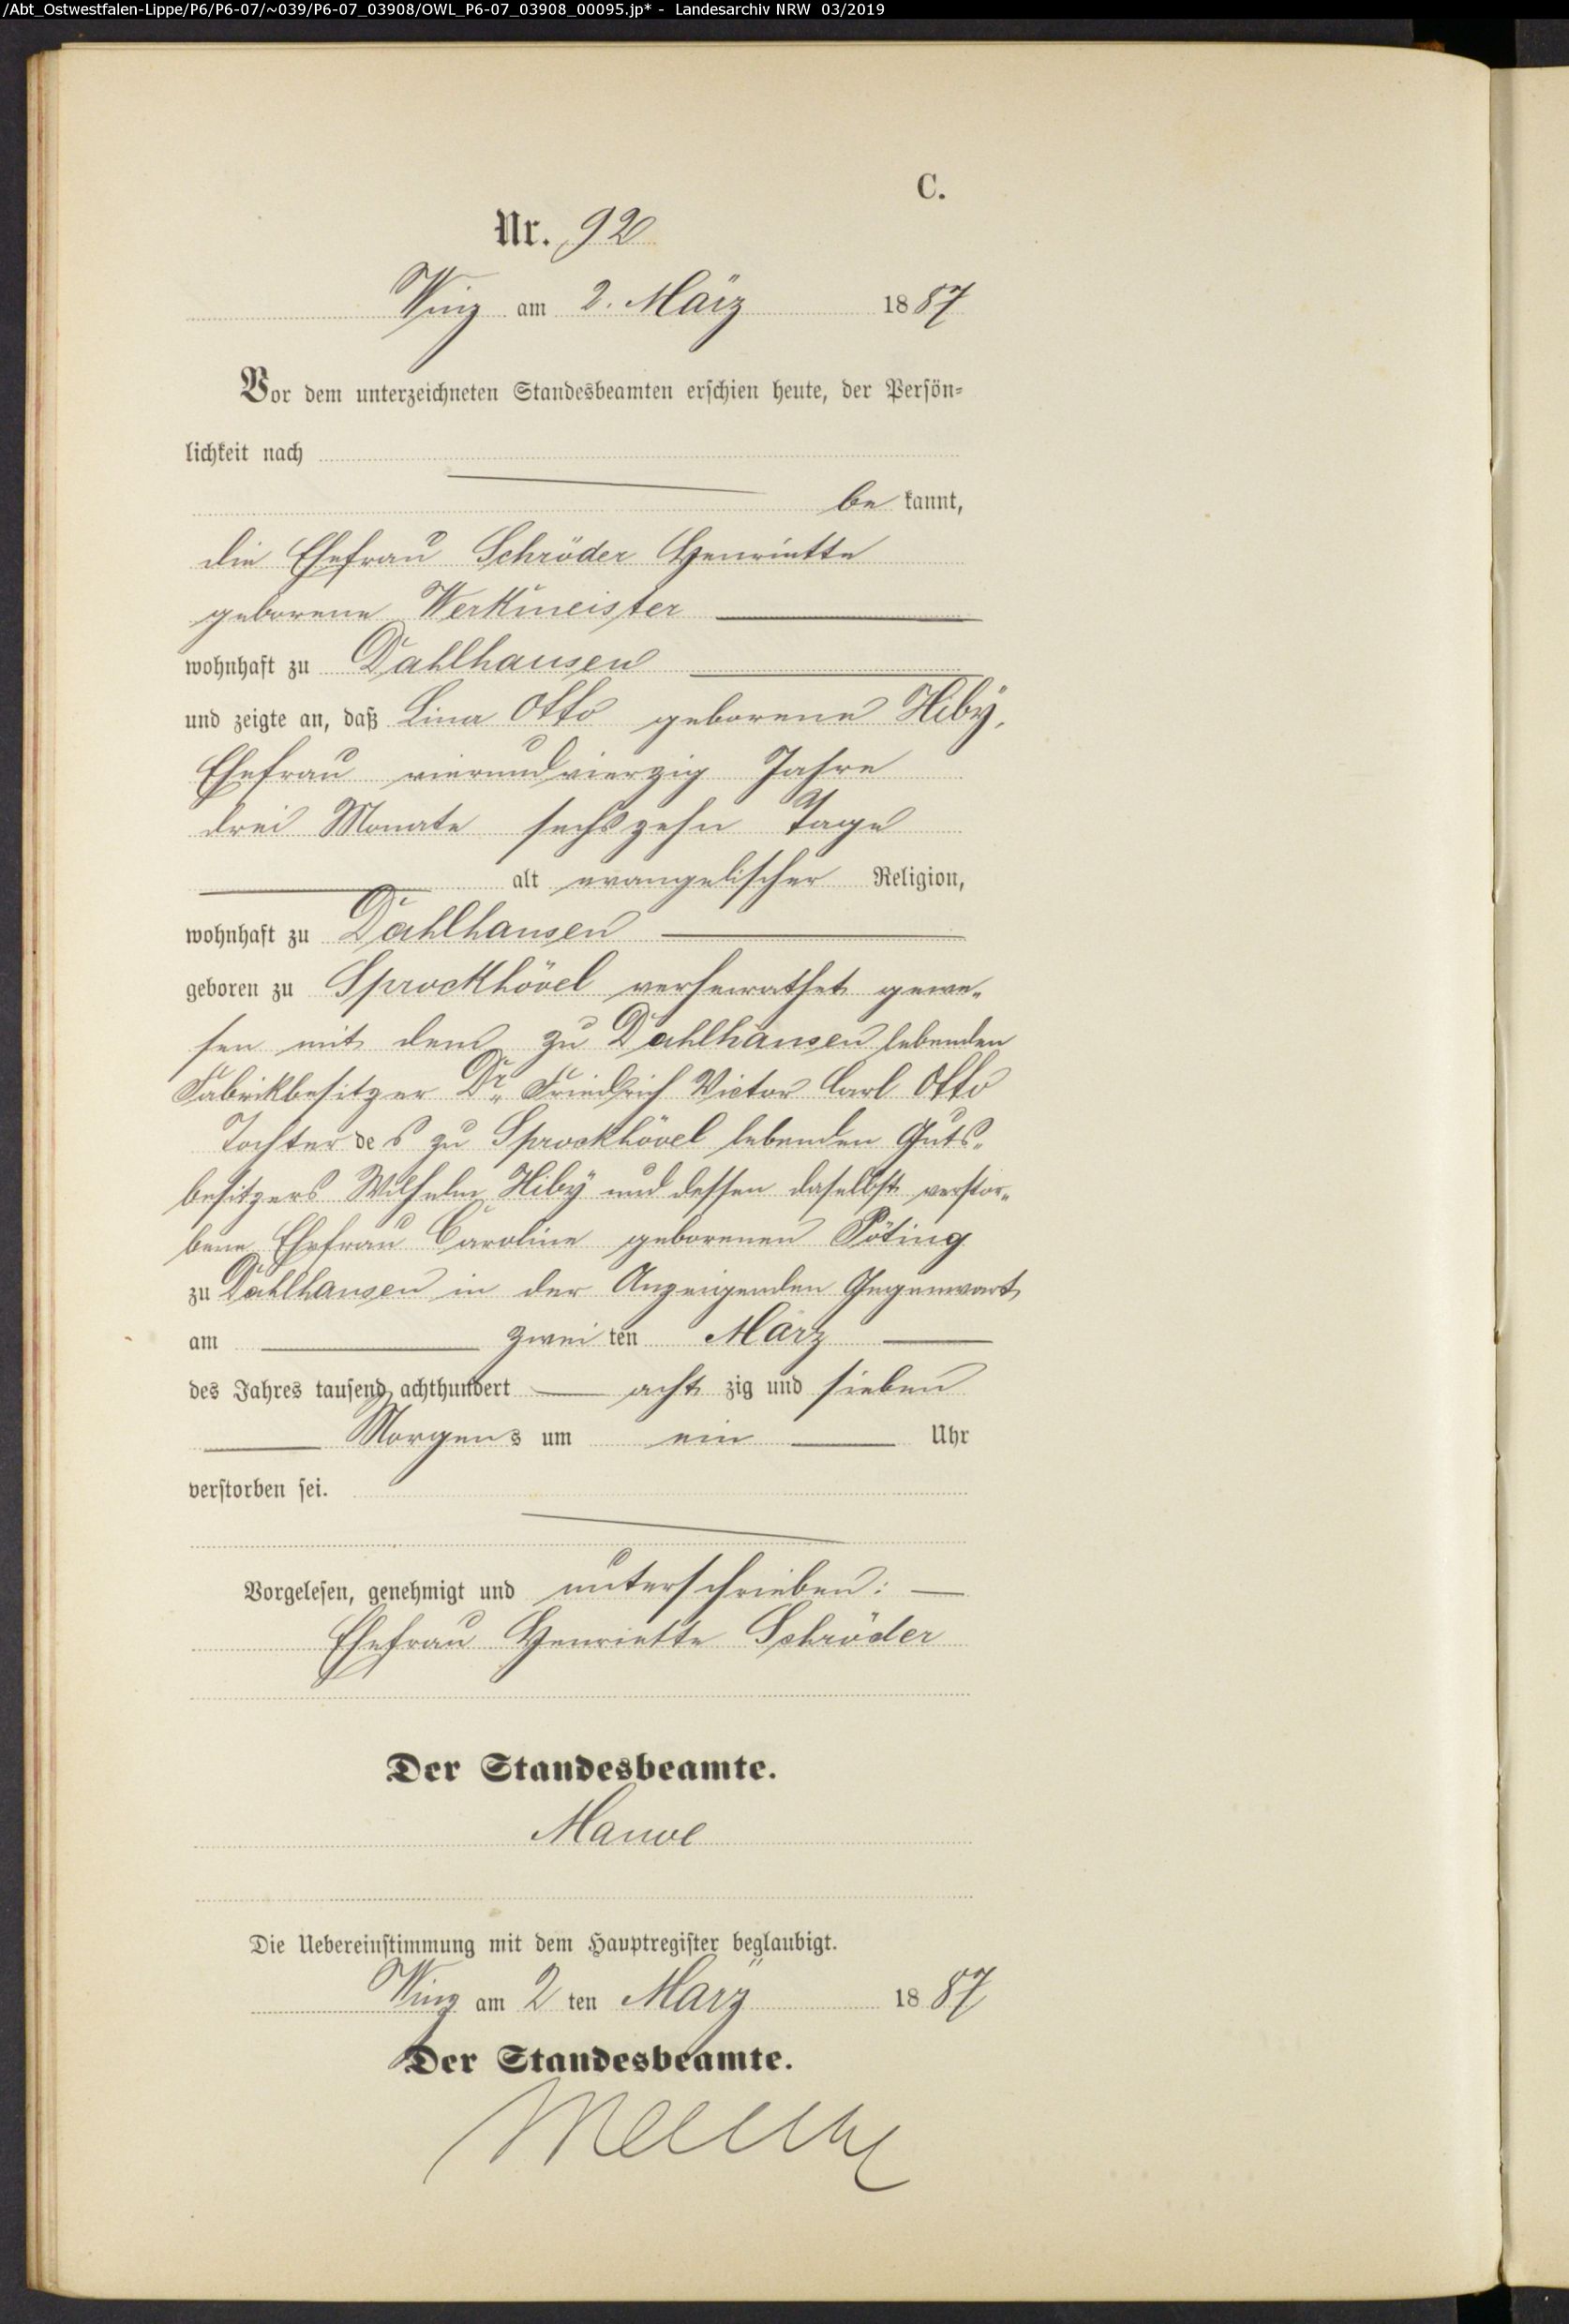 /Abt_Ostwestfalen-Lippe/P6/P6-07/~039/P6-07_03908/OWL_P6-07_03908_00095.jp* - Landesarchiv NRW 03/2019
C.
Nr. 92
Winz am 2. März 1887
Vor dem unterzeichneten Standesbeamten erschien heute, der Persön-
lichkeit nach
be kannt,
die Ehefrau Schröder Henriette
geborene Werkmeister
wohnhaft zu Dahlhausen
und zeigte an, daß Lina Otto geborene Hiby,
Ehefrau vierundvierzig Jahre
drei Monate sechszehn Tage
alt evangelischer Religion,
wohnhaft zu Dahlhausen
geboren zu Sprockhövel verheirathet gewe-
sen mit dem zu Dahlhausen lebenden
Fabrikbesitzer Dr. Friedrich Victor Carl Otto
Tochter des zu Sprockhövel lebenden Guts-
besitzers Wilhelm Hiby und dessen daselbst verstor-
bene Ehefrau Caroline geborenen Pöting
zu Dahlhausen in der Anzeigenden Gegenwart
am zwei ten März
des Jahres tausend achthundert acht zig und sieben
Morgens um ein Uhr
verstorben sei.
Vorgelesen, genehmigt und unterschrieben:
Ehefrau Henriette Schröder
Der Standesbeamte.
Mauve
Die Uebereinstimmung mit dem Hauptregister beglaubigt.
Winz am 2 ten März 1887
Der Standesbeamte.
Mauve